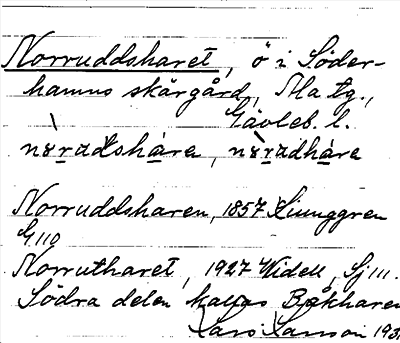 Norruddsharet, ö i Söder-
hamns skärgård, Ma tg.,
Gävleb. l.
Norruddsharen, 1857 Ljunggren
G 110
Norrutharet, 1927 Widell, Sj 111.
Södra delen kallas Bokharen
Lars Larsson 193